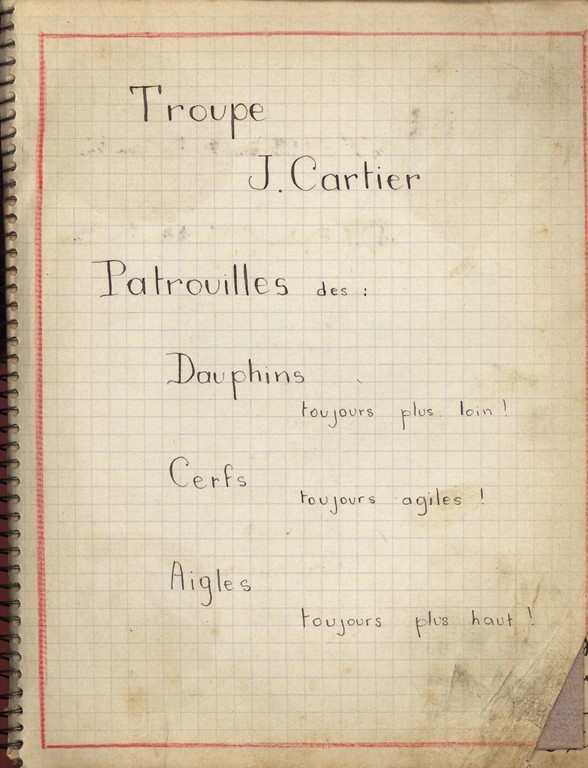 Troupe
J. Cartier
Patrouilles des :
Dauphins
toujours plus loin !
Cerfs
toujours agiles !
Aigles
toujours plus haut !